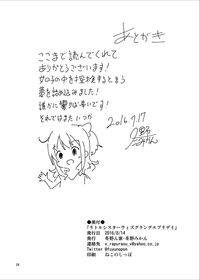 あとがき
ここまで読んでくれて
ありがとうございます!
女の子の中を探検するという
夢を詰め込みました!
誰かに響けば幸いです!
それではまたいつか
2016.7.17
冬野みかん
●奥付●
『リトルシスターウィズグランデエブリデイ』
発行日 2016/8/14
発行 冬野ん家・冬野みかん
連絡先 v_rapurasu_v@yahoo.co.jp
Twitter @fuyunopon
印刷 ねこのしっぽ